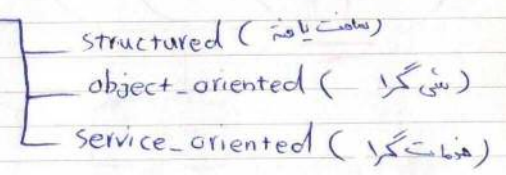 structured (ساخت یافته)
object_oriented (شی گرا)
service_oriented (خدمات گرا)